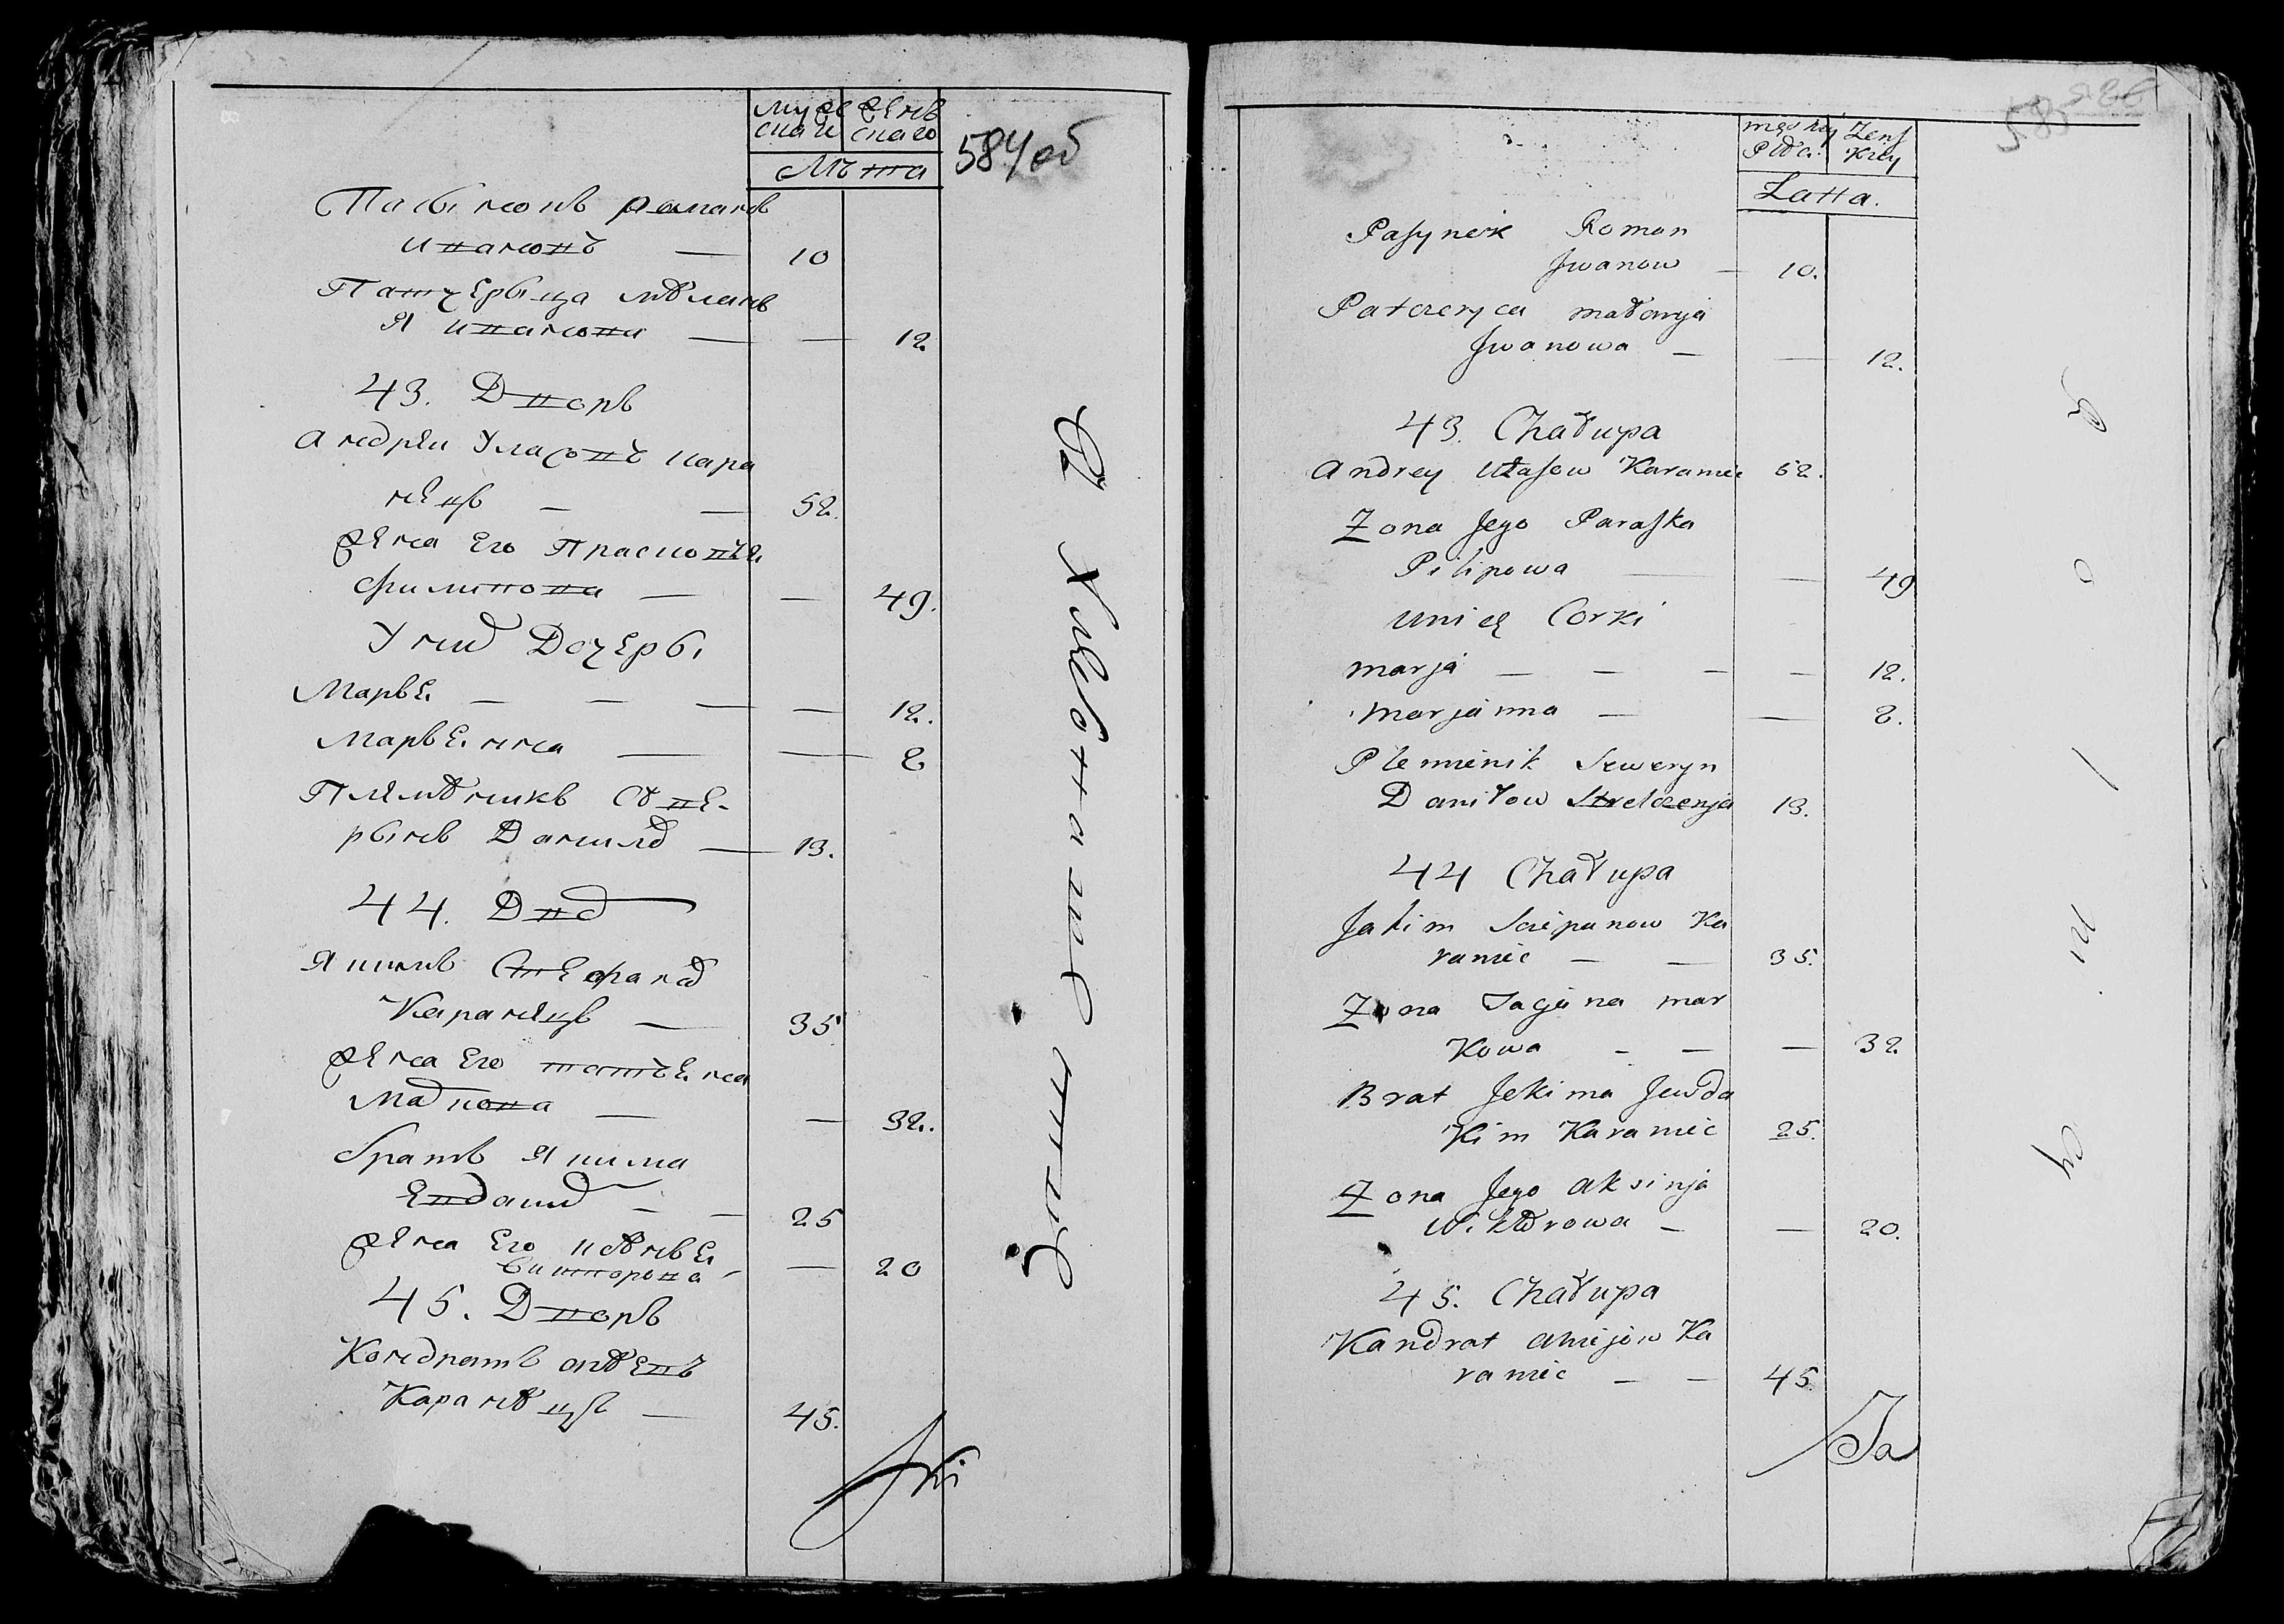 584 об
Лѣта
Пасынокъ романъ
ивановъ — 10
Патчерыца мѣланъ
я иванова — — 12.
43. Дворъ
андрей Уласовъ кара
нецъ — — 52.
жена Его Прасковья
филипова — — 49.
У нихъ Дочеры
Марья — — — — 12.
Марьянна — — 8
рынъ Данилов — 13.
44. Двор
Якимъ Стефанов
Каранецъ — 35
жена Его татьяна
Маркова — — 32.
братъ Якима
Евдаким — — 25
жена Его
викторова — — 20
45. Дворъ
Кондратъ
Каранецъ — 45.
585
męskiey Żens
Płci Kiey
Latta.
Pasynek Roman
Jwanow — 10.
Patczeryca małanja
Jwanowa — — 12.
43. Chałupa
Andrey Ułasow Karaniec 52.
Zona Jego Paraska
Pilipowa — — 49
Unich Corki
marja — — — — 12.
Marjanna — — 8.
Plemienik Seweryn
Daniłow Strelczenja 13.
44 Chałupa
Jakim Sciepanow Ka
raniec — — 35.
Zona Tacjana mar
Kowa — — — 32
Brat Jekima Jewda
Kim Karaniec 25.
Zona Jego aksinja
Wiktorowa — — 20.
45. Chałupa
Kandrat Ka
raniec — — 45